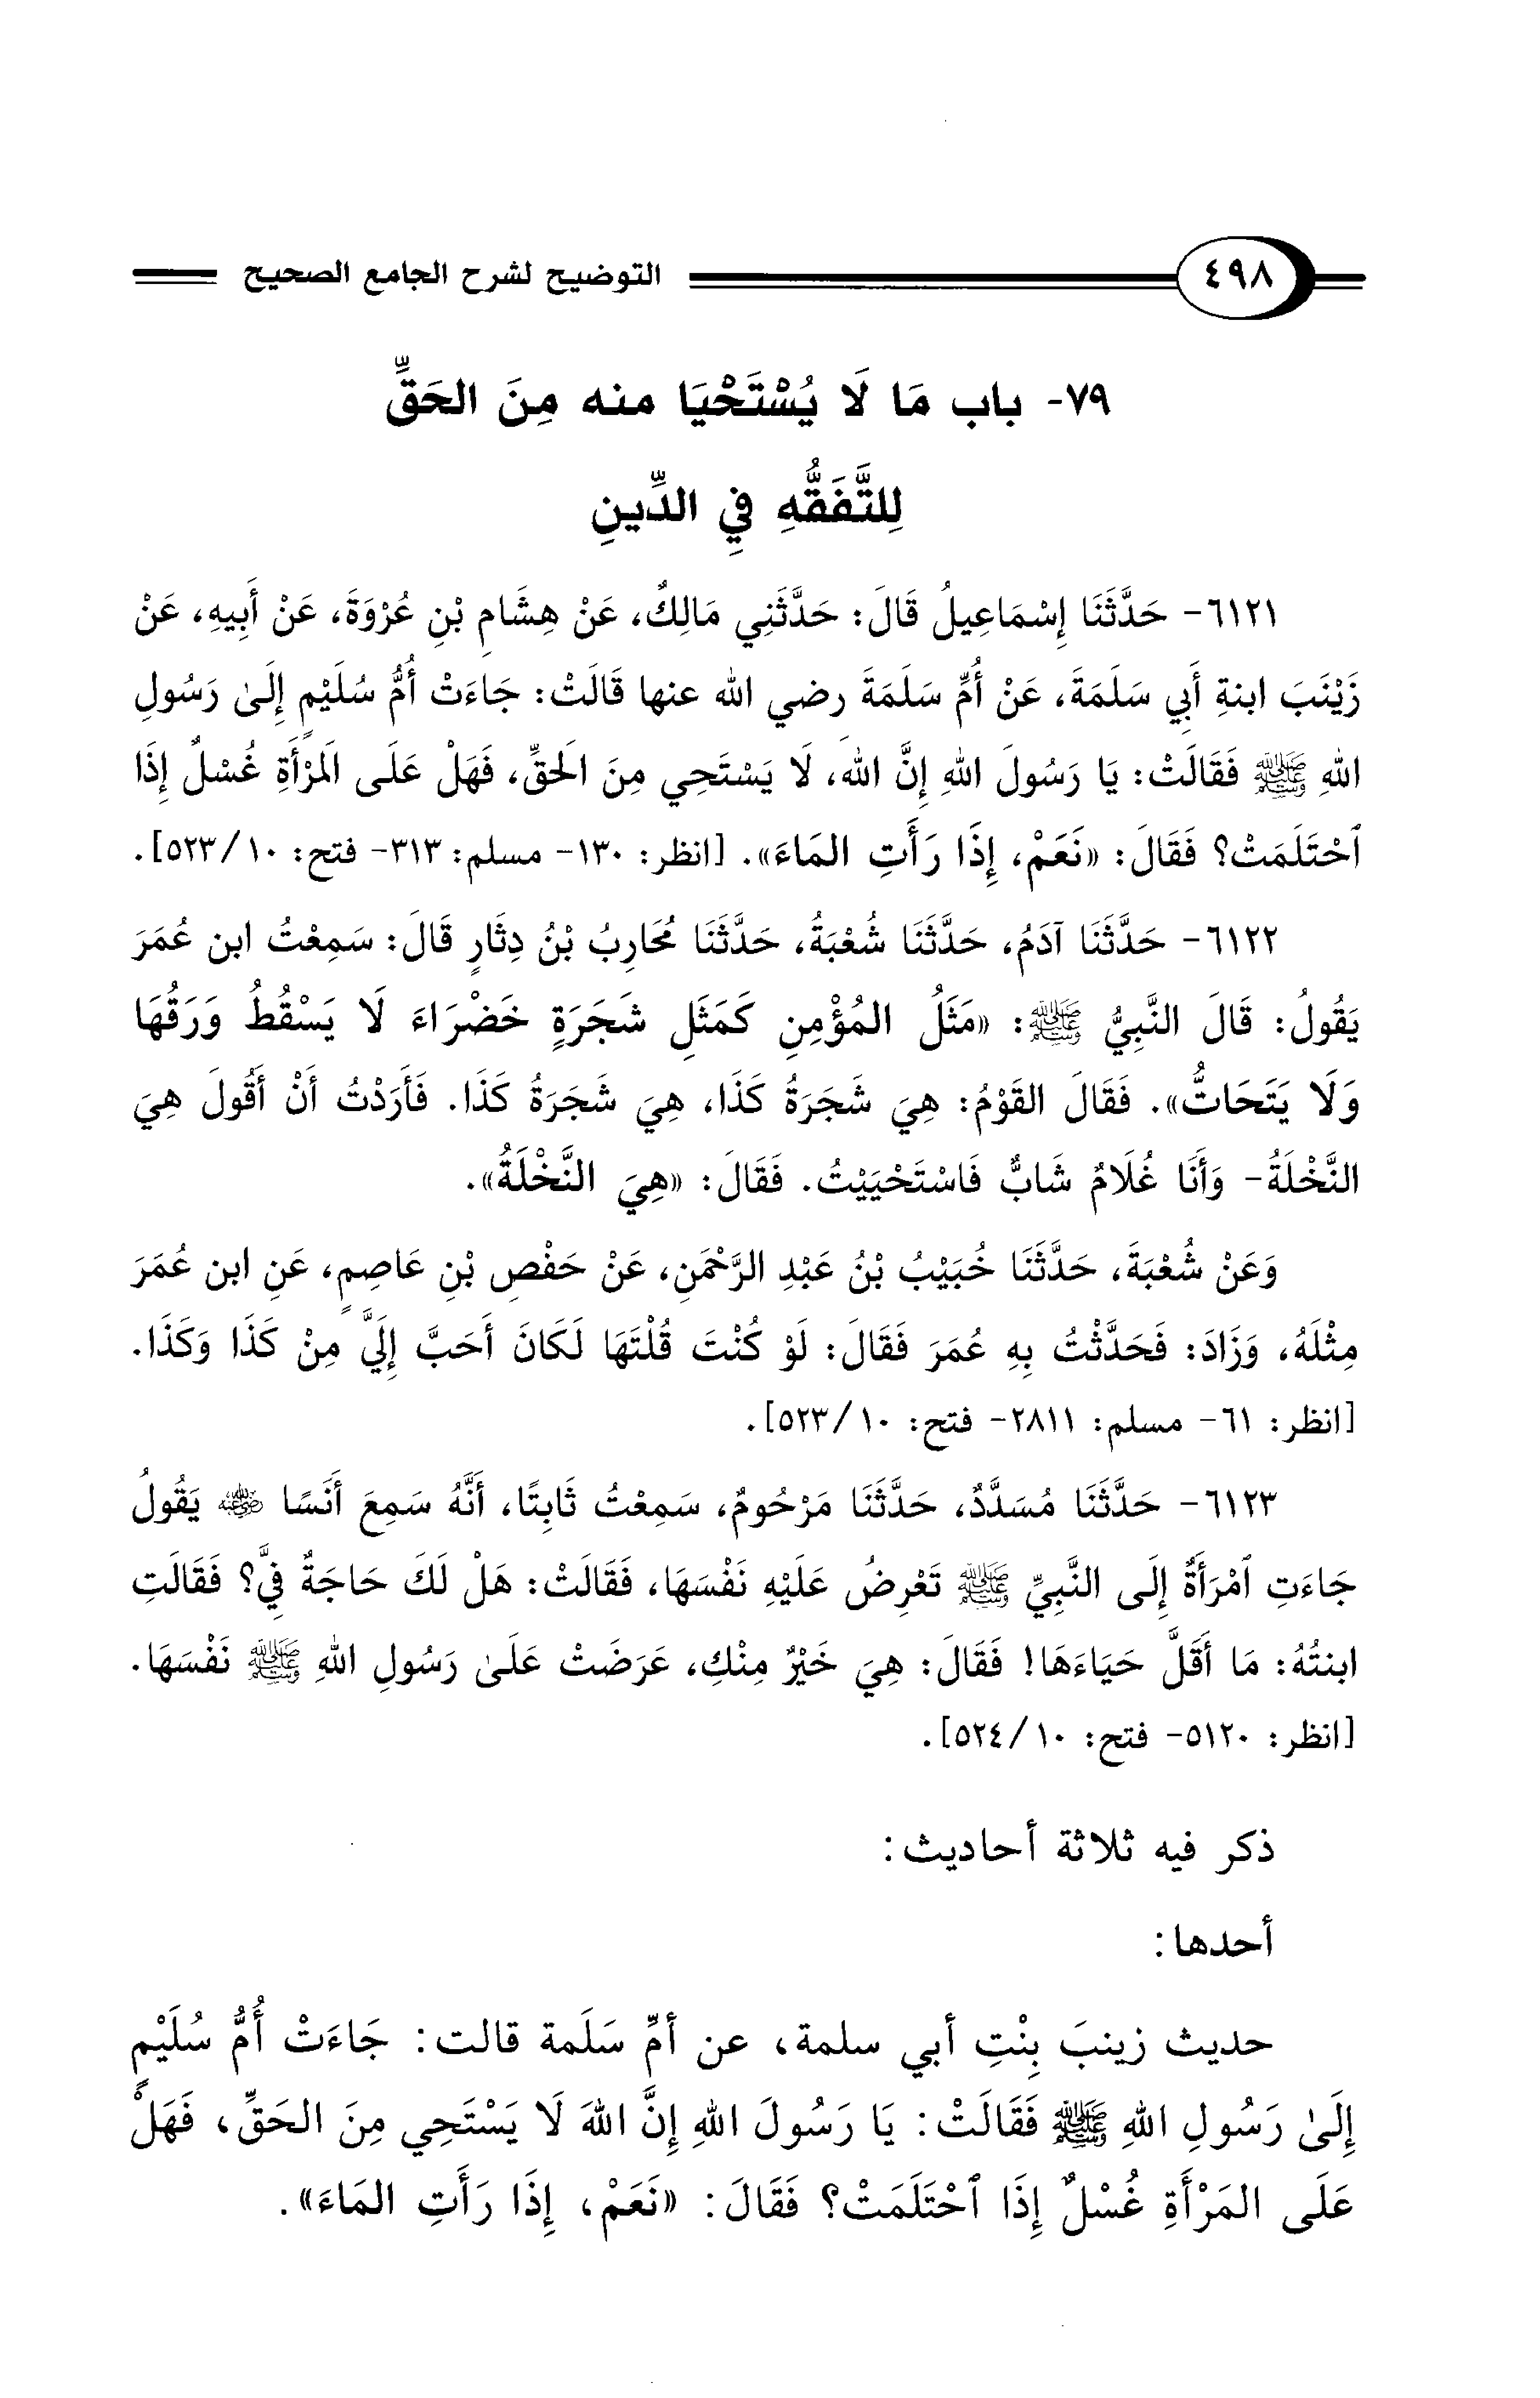 ٤٩٨ التوضيح لشرح الجامع الصحيح
٧٩- باب مَا لَا يُسْتَحْيَا منه مِنَ الحَقِّ
لِلتَّفَقُّهِ فِي الدِّينِ
٦١٢١- حَدَّثَنَا إِسْمَاعِيلُ قَالَ: حَدَّثَنِي مَالِكٌ، عَنْ هِشَامِ بْنِ عُرْوَةَ، عَنْ أَبِيهِ، عَنْ
زَيْنَبَ ابنةِ أَبِي سَلَمَةَ، عَنْ أُمِّ سَلَمَةَ رضي الله عنها قَالَتْ: جَاءَتْ أُمُّ سُلَيْمٍ إِلَىٰ رَسُولِ
اللهِ ﷺ فَقَالَتْ: يَا رَسُولَ اللهِ إِنَّ اللهَ، لَا يَسْتَحِي مِنَ الَحقِّ، فَهَلْ عَلَى الَمرْأَةِ غُسْلٌ إِذَا
ٱحْتَلَمَتْ؟ فَقَالَ: «نَعَمْ، إِذَا رَأَتِ المَاءَ». [انظر: ١٣٠- مسلم: ٣١٣- فتح: ١٠/ ٥٢٣].
٦١٢٢- حَدَّثَنَا آدَمُ، حَدَّثَنَا شُعْبَةُ، حَدَّثَنَا مُحَارِبُ بْنُ دِثَارٍ قَالَ: سَمِعْتُ ابن عُمَرَ
يَقُولُ: قَالَ النَّبِيُّ ﷺ: «مَثَلُ المُؤْمِنِ كَمَثَلِ شَجَرَةٍ خَضْرَاءَ لَا يَسْقُطُ وَرَقُهَا
وَلَا يَتَحَاتُّ». فَقَالَ القَوْمُ: هِيَ شَجَرَةُ كَذَا، هِيَ شَجَرَةُ كَذَا. فَأَرَدْتُ أَنْ أَقُولَ هِيَ
النَّخْلَةُ- وَأَنَا غُلَامٌ شَابٌّ فَاسْتَحْيَيْتُ. فَقَالَ: «هِيَ النَّخْلَةُ».
وَعَنْ شُعْبَةَ، حَدَّثَنَا خُبَيْبُ بْنُ عَبْدِ الرَّحْمَنِ، عَنْ حَفْصِ بْنِ عَاصِمٍ، عَنِ ابن عُمَرَ
مِثْلَهُ، وَزَادَ: فَحَدَّثْتُ بِهِ عُمَرَ فَقَالَ: لَوْ كُنْتَ قُلْتَهَا لَكَانَ أَحَبَّ إِلَيَّ مِنْ كَذَا وَكَذَا.
[انظر: ٦١- مسلم: ٢٨١١- فتح: ١٠/ ٥٢٣].
٦١٢٣- حَدَّثَنَا مُسَدَّدٌ، حَدَّثَنَا مَرْحُومٌ، سَمِعْتُ ثَابِتًا، أَنَّهُ سَمِعَ أَنَسًا رضي الله عنه يَقُولُ
جَاءَتِ ٱمْرَأَةٌ إِلَى النَّبِيِّ ﷺ تَعْرِضُ عَلَيْهِ نَفْسَهَا، فَقَالَتْ: هَلْ لَكَ حَاجَةٌ فِيَّ؟ فَقَالَتِ
ابنتُهُ: مَا أَقَلَّ حَيَاءَهَا! فَقَالَ: هِيَ خَيْرٌ مِنْكِ، عَرَضَتْ عَلَىٰ رَسُولِ اللهِ ﷺ نَفْسَهَا.
[انظر: ٥١٢٠- فتح: ١٠/ ٥٢٤].
ذكر فيه ثلاثة أحاديث:
أحدها:
حديث زينبَ بِنْتِ أبي سلمة، عن أمِّ سَلَمة قالت: جَاءَتْ أُمُّ سُلَيْمٍ
إِلَىٰ رَسُولِ اللهِ ﷺ فَقَالَتْ: يَا رَسُولَ اللهِ إِنَّ اللهَ لَا يَسْتَحِي مِنَ الحَقِّ، فَهَلْ
عَلَى المَرْأَةِ غُسْلٌ إِذَا ٱحْتَلَمَتْ؟ فَقَالَ: «نَعَمْ، إِذَا رَأَتِ المَاءَ».